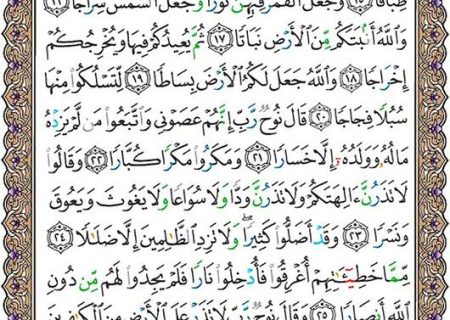 طِبَاقًا ﴿١٥﴾ وَجَعَلَ ٱلْقَمَرَ فِيهِنَّ نُورًا وَجَعَلَ ٱلشَّمْسَ سِرَاجًا ﴿١٦﴾
وَٱللَّهُ أَنۢبَتَكُم مِّنَ ٱلْأَرْضِ نَبَاتًا ﴿١٧﴾ ثُمَّ يُعِيدُكُمْ فِيهَا وَيُخْرِجُكُمْ
إِخْرَاجًا ﴿١٨﴾ وَٱللَّهُ جَعَلَ لَكُمُ ٱلْأَرْضَ بِسَاطًا ﴿١٩﴾ لِّتَسْلُكُوا۟ مِنْهَا
سُبُلًا فِجَاجًا ﴿٢٠﴾ قَالَ نُوحٌ رَّبِّ إِنَّهُمْ عَصَوْنِى وَٱتَّبَعُوا۟ مَن لَّمْ يَزِدْهُ
مَالُهُۥ وَوَلَدُهُۥٓ إِلَّا خَسَارًا ﴿٢١﴾ وَمَكَرُوا۟ مَكْرًا كُبَّارًا ﴿٢٢﴾ وَقَالُوا۟
لَا تَذَرُنَّ ءَالِهَتَكُمْ وَلَا تَذَرُنَّ وَدًّا وَلَا سُوَاعًا وَلَا يَغُوثَ وَيَعُوقَ
وَنَسْرًا ﴿٢٣﴾ وَقَدْ أَضَلُّوا۟ كَثِيرًا ۖ وَلَا تَزِدِ ٱلظَّٰلِمِينَ إِلَّا ضَلَٰلًا ﴿٢٤﴾
مِّمَّا خَطِيٓـَٰٔتِهِمْ أُغْرِقُوا۟ فَأُدْخِلُوا۟ نَارًا فَلَمْ يَجِدُوا۟ لَهُم مِّن دُونِ
ٱللَّهِ أَنصَارًا ﴿٢٥﴾ وَقَالَ نُوحٌ رَّبِّ لَا تَذَرْ عَلَى ٱلْأَرْضِ مِنَ ٱلْكَٰفِرِينَ